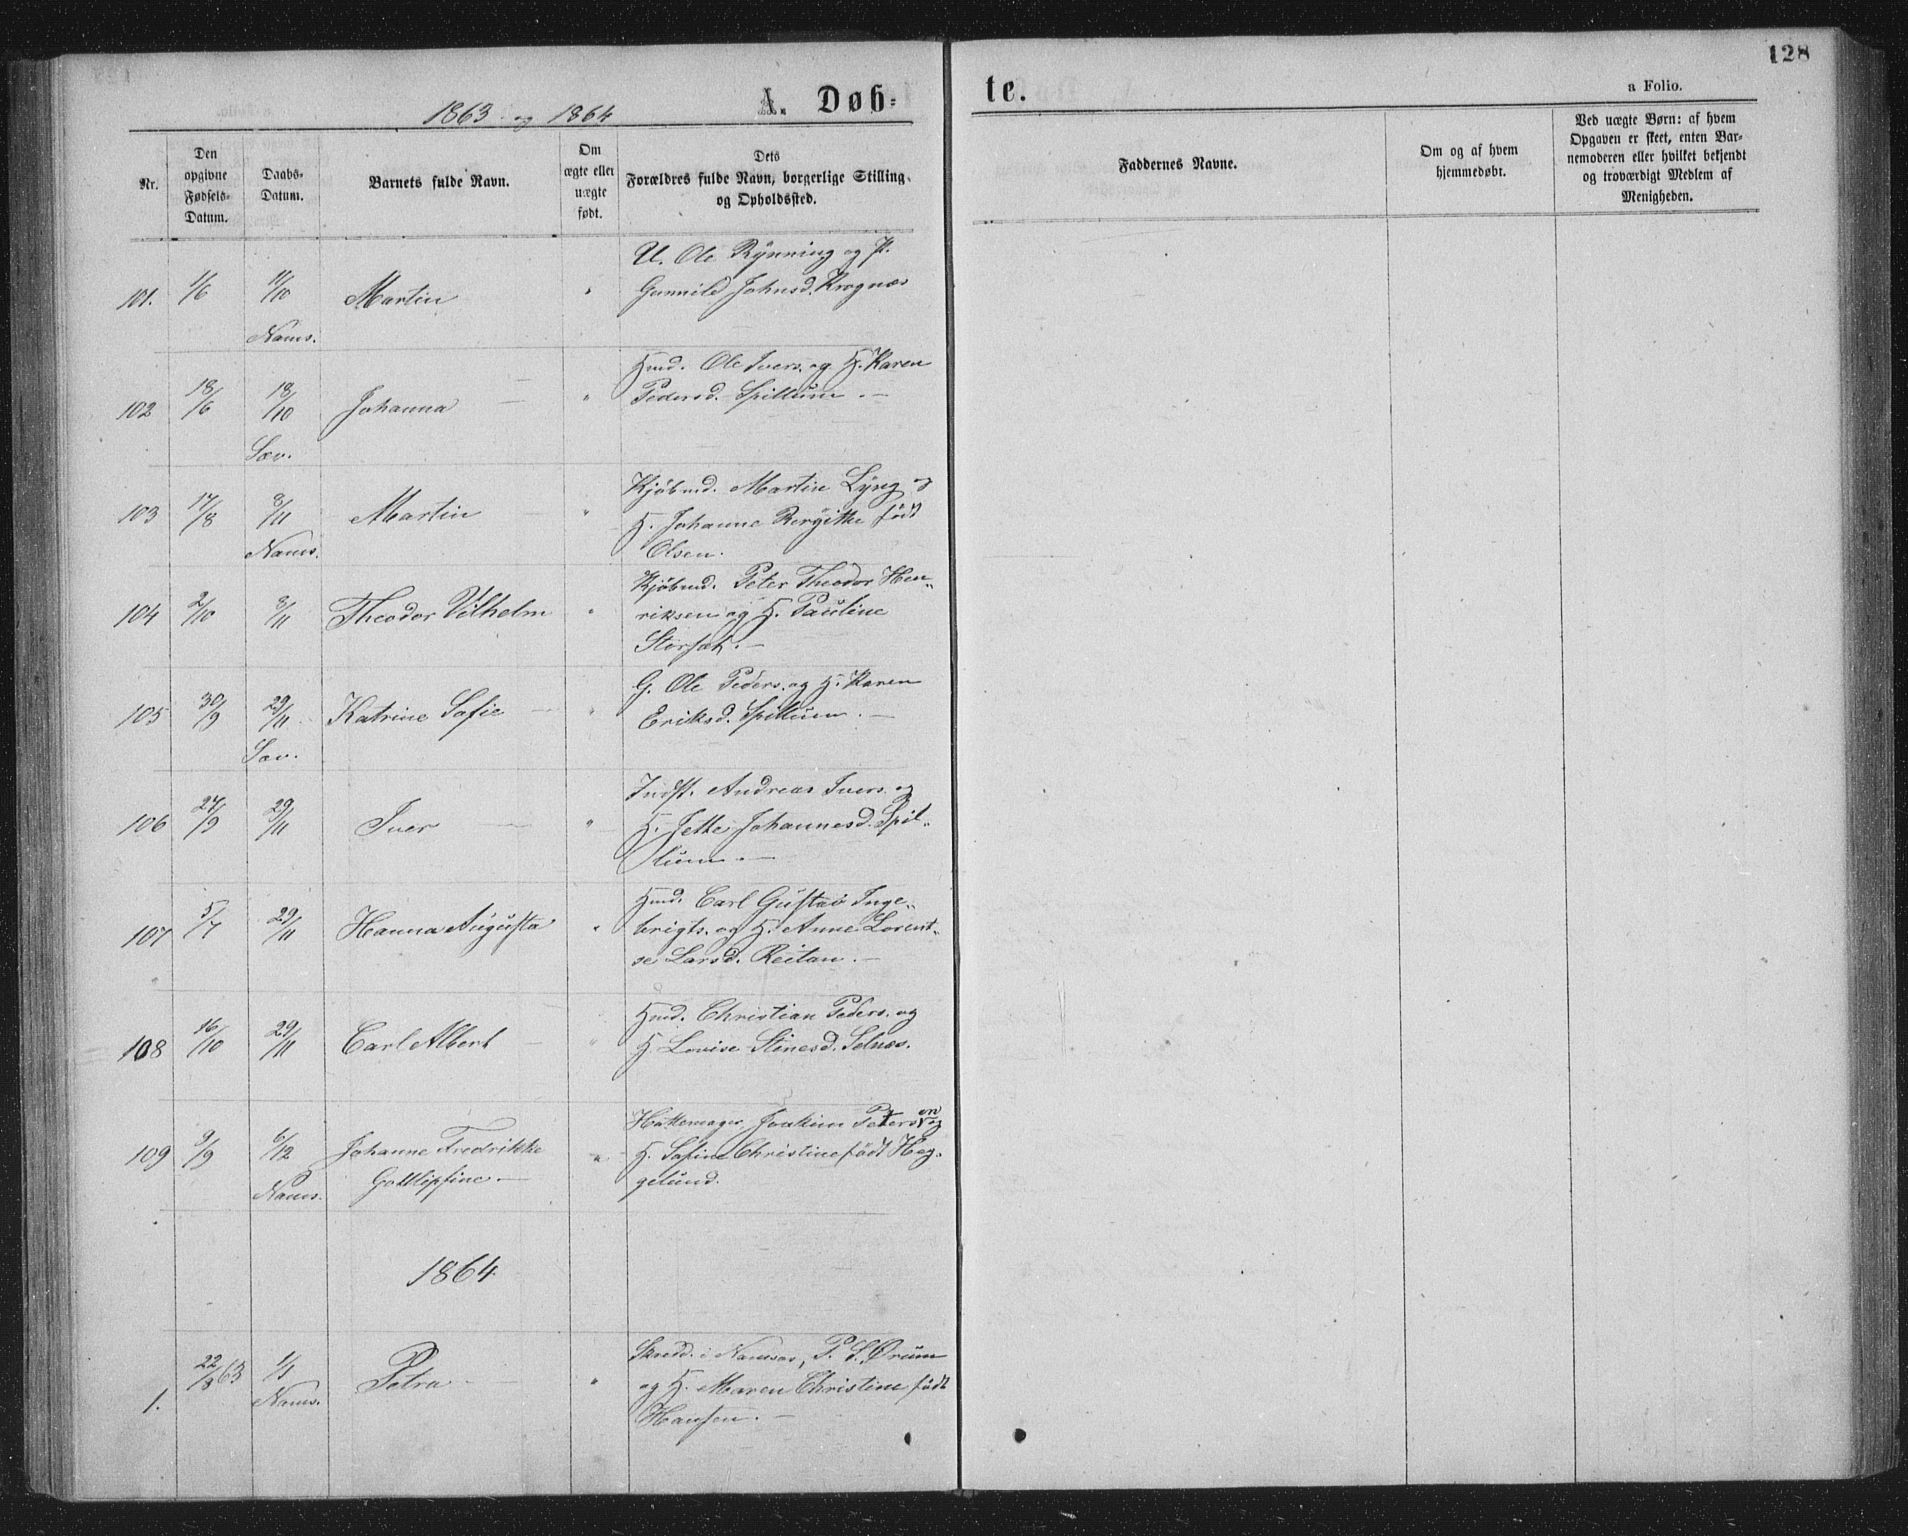 128
1863 og 1864
A. Døb=
te.
a Folio.
Nr.
Den opgivne Fødsels-Datum.
Daabs-Datum.
Barnets fulde Navn.
Om ægte eller uægte født.
Dets Forældres fulde Navn, borgerlige Stilling og Opholdssted.
Faddernes Navne.
Om og af hvem hjemmedøbt.
Ved uægte Børn: af hvem Opgaven er skeet, enten Barnemoderen eller hvilket bekjendt og troværdigt Medlem af Menigheden.
101. 1/6 11/10 Martin " U. Ole Rynning og P.
Gunnild Johnsd. Kragnæs
Nams.
102 18/6 18/10 Johanna " Hmd. Ole Ivers. og H. Karen
Pedersd. Spillum. —
Sæv.
103 17/8 8/11 Martin " Kjøbmd. Martin Lyng og
H. Johanne Bergitte født
Nams. Olsen.
104 2/10 8/11 Theodor Vilhelm " Kjøbmd. Peter Theodor Hen-
riksen og H. Pauline
Storsæt. —
105 30/9 29/11 Katrine Sofie " G. Ole Peders. og H. Karen
Eriksd. Spillum. —
Sæv.
106 27/9 29/11 Iver " Indst. Andreas Ivers. og
H. Jette Johannesd. Spil-
lum. —
107 5/7 29/11 Hanna Augusta " Hmd. Carl Gustav Inge-
brigts. og H. Anne Lorent-
se Larsd. Reitan. —
108 16/10 29/11 Carl Albert " Hmd. Christian Peders. og
H. Lovise Stinesd. Selnæs.
109 9/9 6/12 Johanne Fredrikke " Hattemager Joakim Petersen og
Gottlipfine. — H. Sofine Christine født Heg-
Nams. gelund.
1864
1. 22/8 63 1/1 Petra — " Skredd. i Namsos, P. S. Ørum
Nams. og H. Maren Christine født
Hansen. —